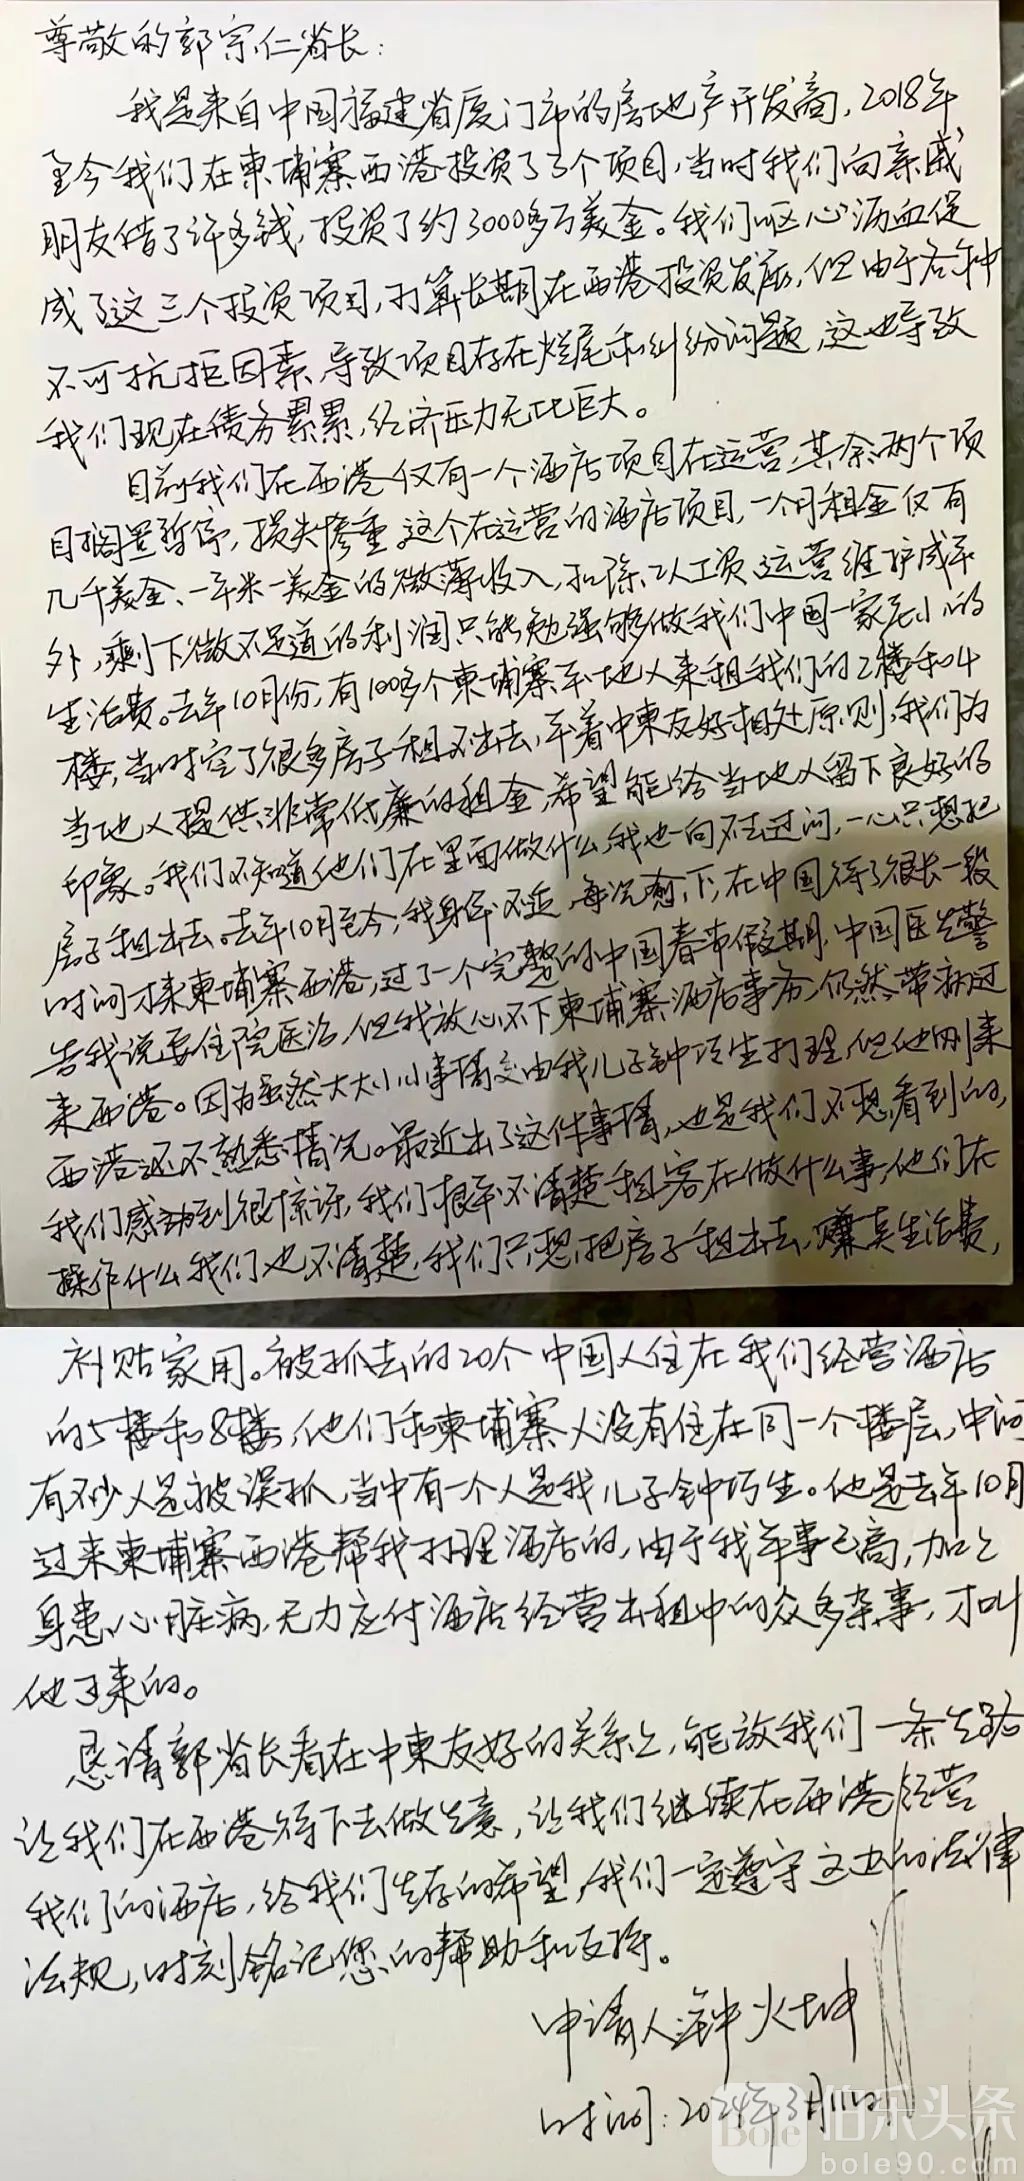 尊敬的郭宗仁省长：
我是来自中国福建省厦门市的房地产开发商，2018年
至今我们在柬埔寨西港投资了三个项目，当时我们向亲戚
朋友借了许多钱，投资了约3000多万美金。我们呕心沥血促
成了这三个投资项目，打算长期在西港投资发展，但由于各种
不可抗拒因素，导致项目存在烂尾和纠纷问题，这也导致
我们现在债务累累，经济压力无比巨大。
目前我们在西港仅有一个酒店项目在运营，其余两个项
目搁置暂停，损失惨重。这个在运营的酒店项目，一个月租金仅有
几千美金、一年来一美金的微薄收入，扣除人工资运营维护成本
外，剩下微不足道的利润只能勉强够做我们中国一家老小的
生活费。去年10月份，有100多个柬埔寨本地人来租我们的2楼和4
楼，当时空了很多房子租不出去，本着中柬友好相处原则，我们为
当地人提供非常低廉的租金，希望能给当地人留下良好的
印象。我们不知道他们在里面做什么，我也一向不去过问，一心只想把
房子租出去。去年10月至今，我身体不适，每况愈下，在中国待了很长一段
时间才来柬埔寨西港，过了一个完整的中国春节假期，中国医生警
告我说要住院医治，但我放心不下柬埔寨酒店事务，仍然带病过
来西港。因为虽然大大小小事情交由我儿子钟巧生打理，但他刚来
西港还不熟悉情况。最近出了这件事情，也是我们不想看到的，
我们感动到很惊讶，我们根本不清楚租客在做什么事，他们在
操作什么我们也不清楚，我们只想把房子租出去，赚其生活费，
补贴家用。被抓去的20个中国人住在我们经营酒店
的5楼和8楼，他们和柬埔寨人没有住在同一个楼层，中间
有不少人是被误抓，当中有一个人是我儿子钟巧生。他是去年10月
过来柬埔寨西港帮我打理酒店的，由于我年事已高，加上
身患心脏病，无力应付酒店经营出租中的众多杂事，才叫
他过来的。
恳请郭省长看在中柬友好的关系上，能放我们一条生路
让我们在西港待下去做生意，让我们继续在西港经营
我们的酒店，给我们生存的希望，我们一定遵守这边的法律
法规，时刻铭记您的帮助和支持。
申请人：钟火坤
时间：2024年3月11日
伯乐头条
Bole
bole90.com